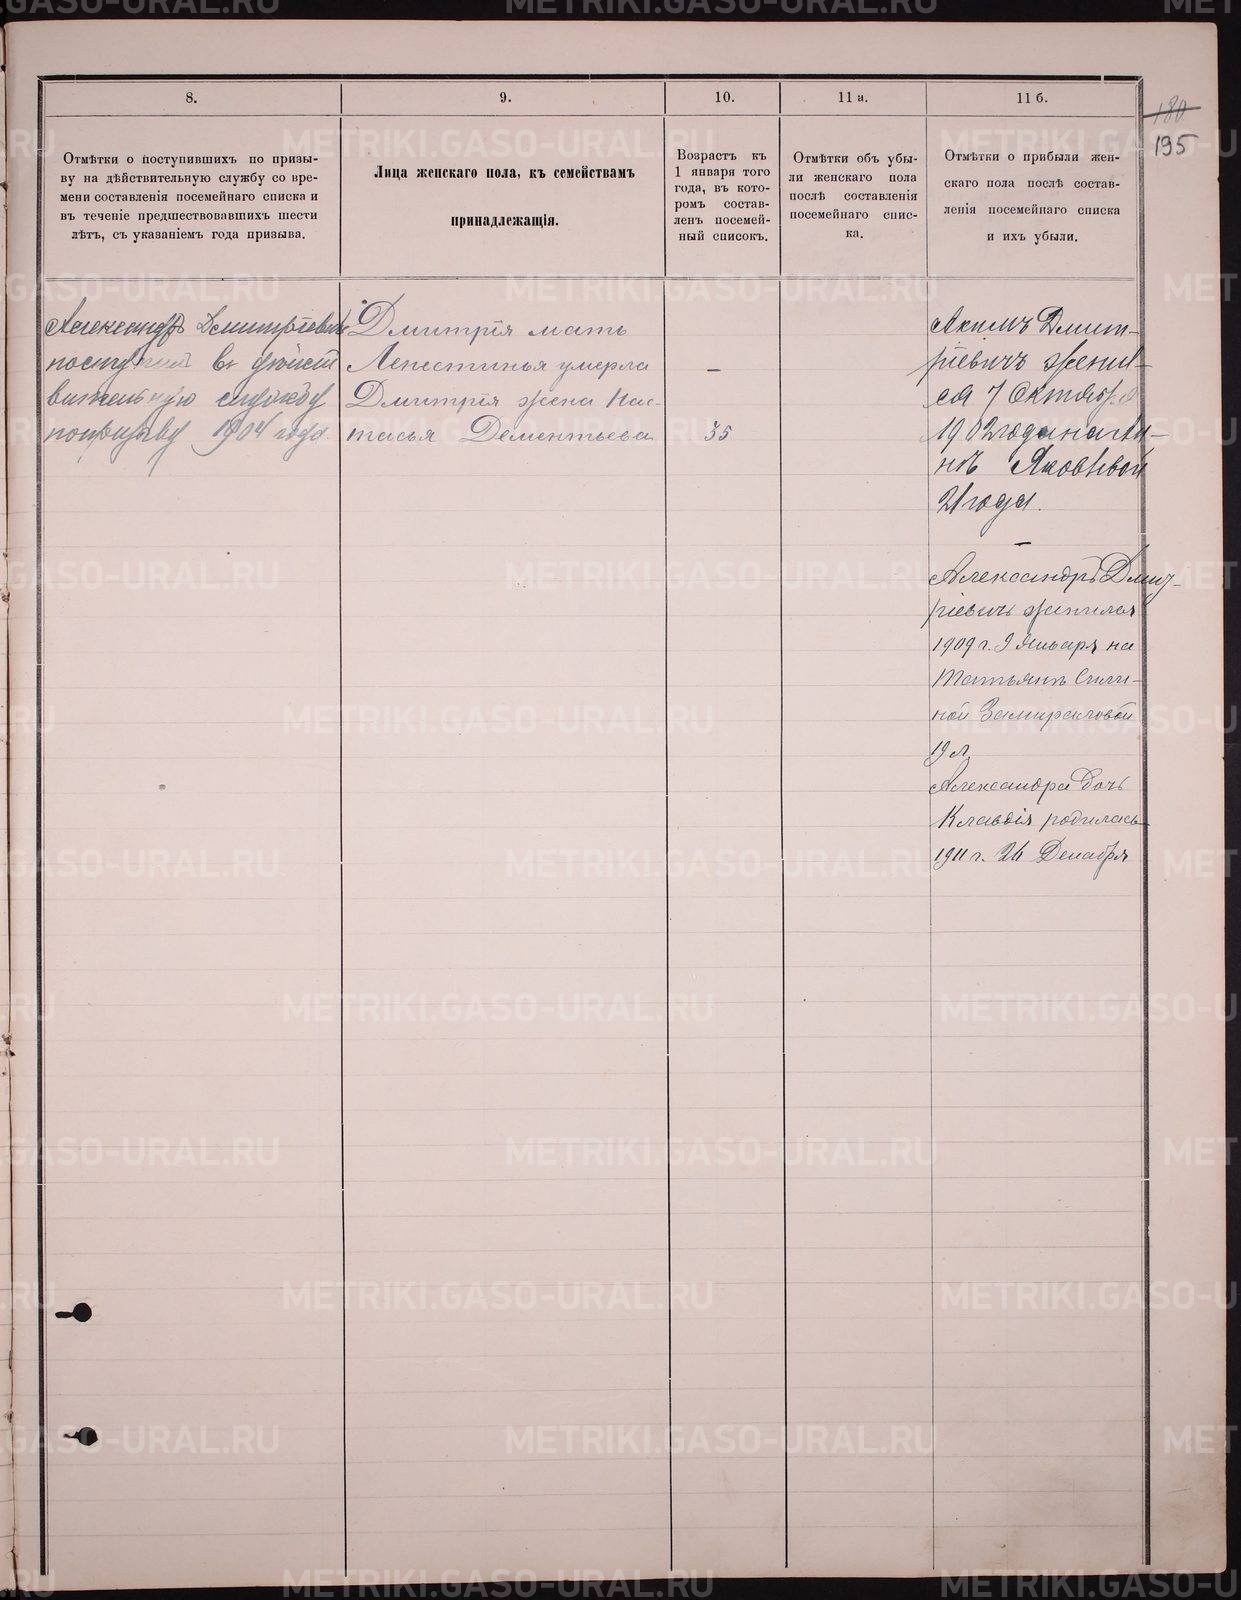 8.
9.
10.
11 а.
11 б.
180
195
Отмѣтки о поступившихъ по призы-
ву на дѣйствительную службу со вре-
мени составленія посемейнаго списка и
въ теченіе предшествовавшихъ шести
лѣтъ, съ указаніемъ года призыва.
Лица женскаго пола, къ семействамъ
принадлежащія.
Возрастъ къ
1 января того
года, въ кото-
ромъ состав-
ленъ посемей-
ный списокъ.
Отмѣтки объ убы-
ли женскаго пола
послѣ составленія
посемейнаго спис-
ка.
Отмѣтки о прибыли жен-
скаго пола послѣ состав-
ленія посемейнаго списка
и ихъ убыли.
Александръ Дмитріевичъ
поступилъ въ дѣйст
вительную службу
по призыву 1904 года.
Дмитрія мать
умерла –
Дмитрія жена Нас-
тасья Дементьева 35
Акимъ Дмит-
ріевичъ женил-
ся 7 Октября
1902 года на
Яковлевой
21 года.
Александръ Дмит-
ріевичъ женился
1909 г. 9 Января на
Татьянѣ Сили-
ной
19 л.
Александра дочь
Клавдія родилась
1911 г. 24 Декабря
METRIKI.GASO-URAL.RU